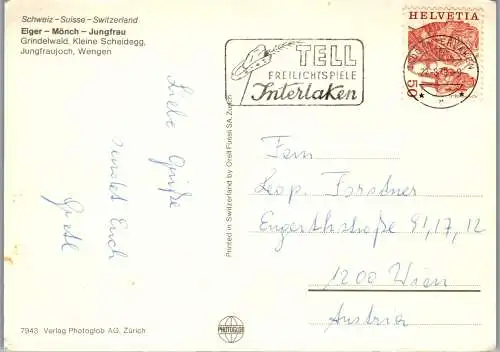 Schweiz – Suisse – Switzerland
Eiger – Mönch – Jungfrau
Grindelwald, Kleine Scheidegg,
Jungfraujoch, Wengen
TELL
FREILICHTSPIELE
Interlaken
HELVETIA
50
Liebe Grüße
sendet Euch
Gretl
Printed in Switzerland by Orell Füssli SA, Zürich
Fam
Leop. Forstner
Engerthstraße 91,17,12
1200 Wien
Austria
PHOTOGLOB
7943 Verlag Photoglob AG, Zürich